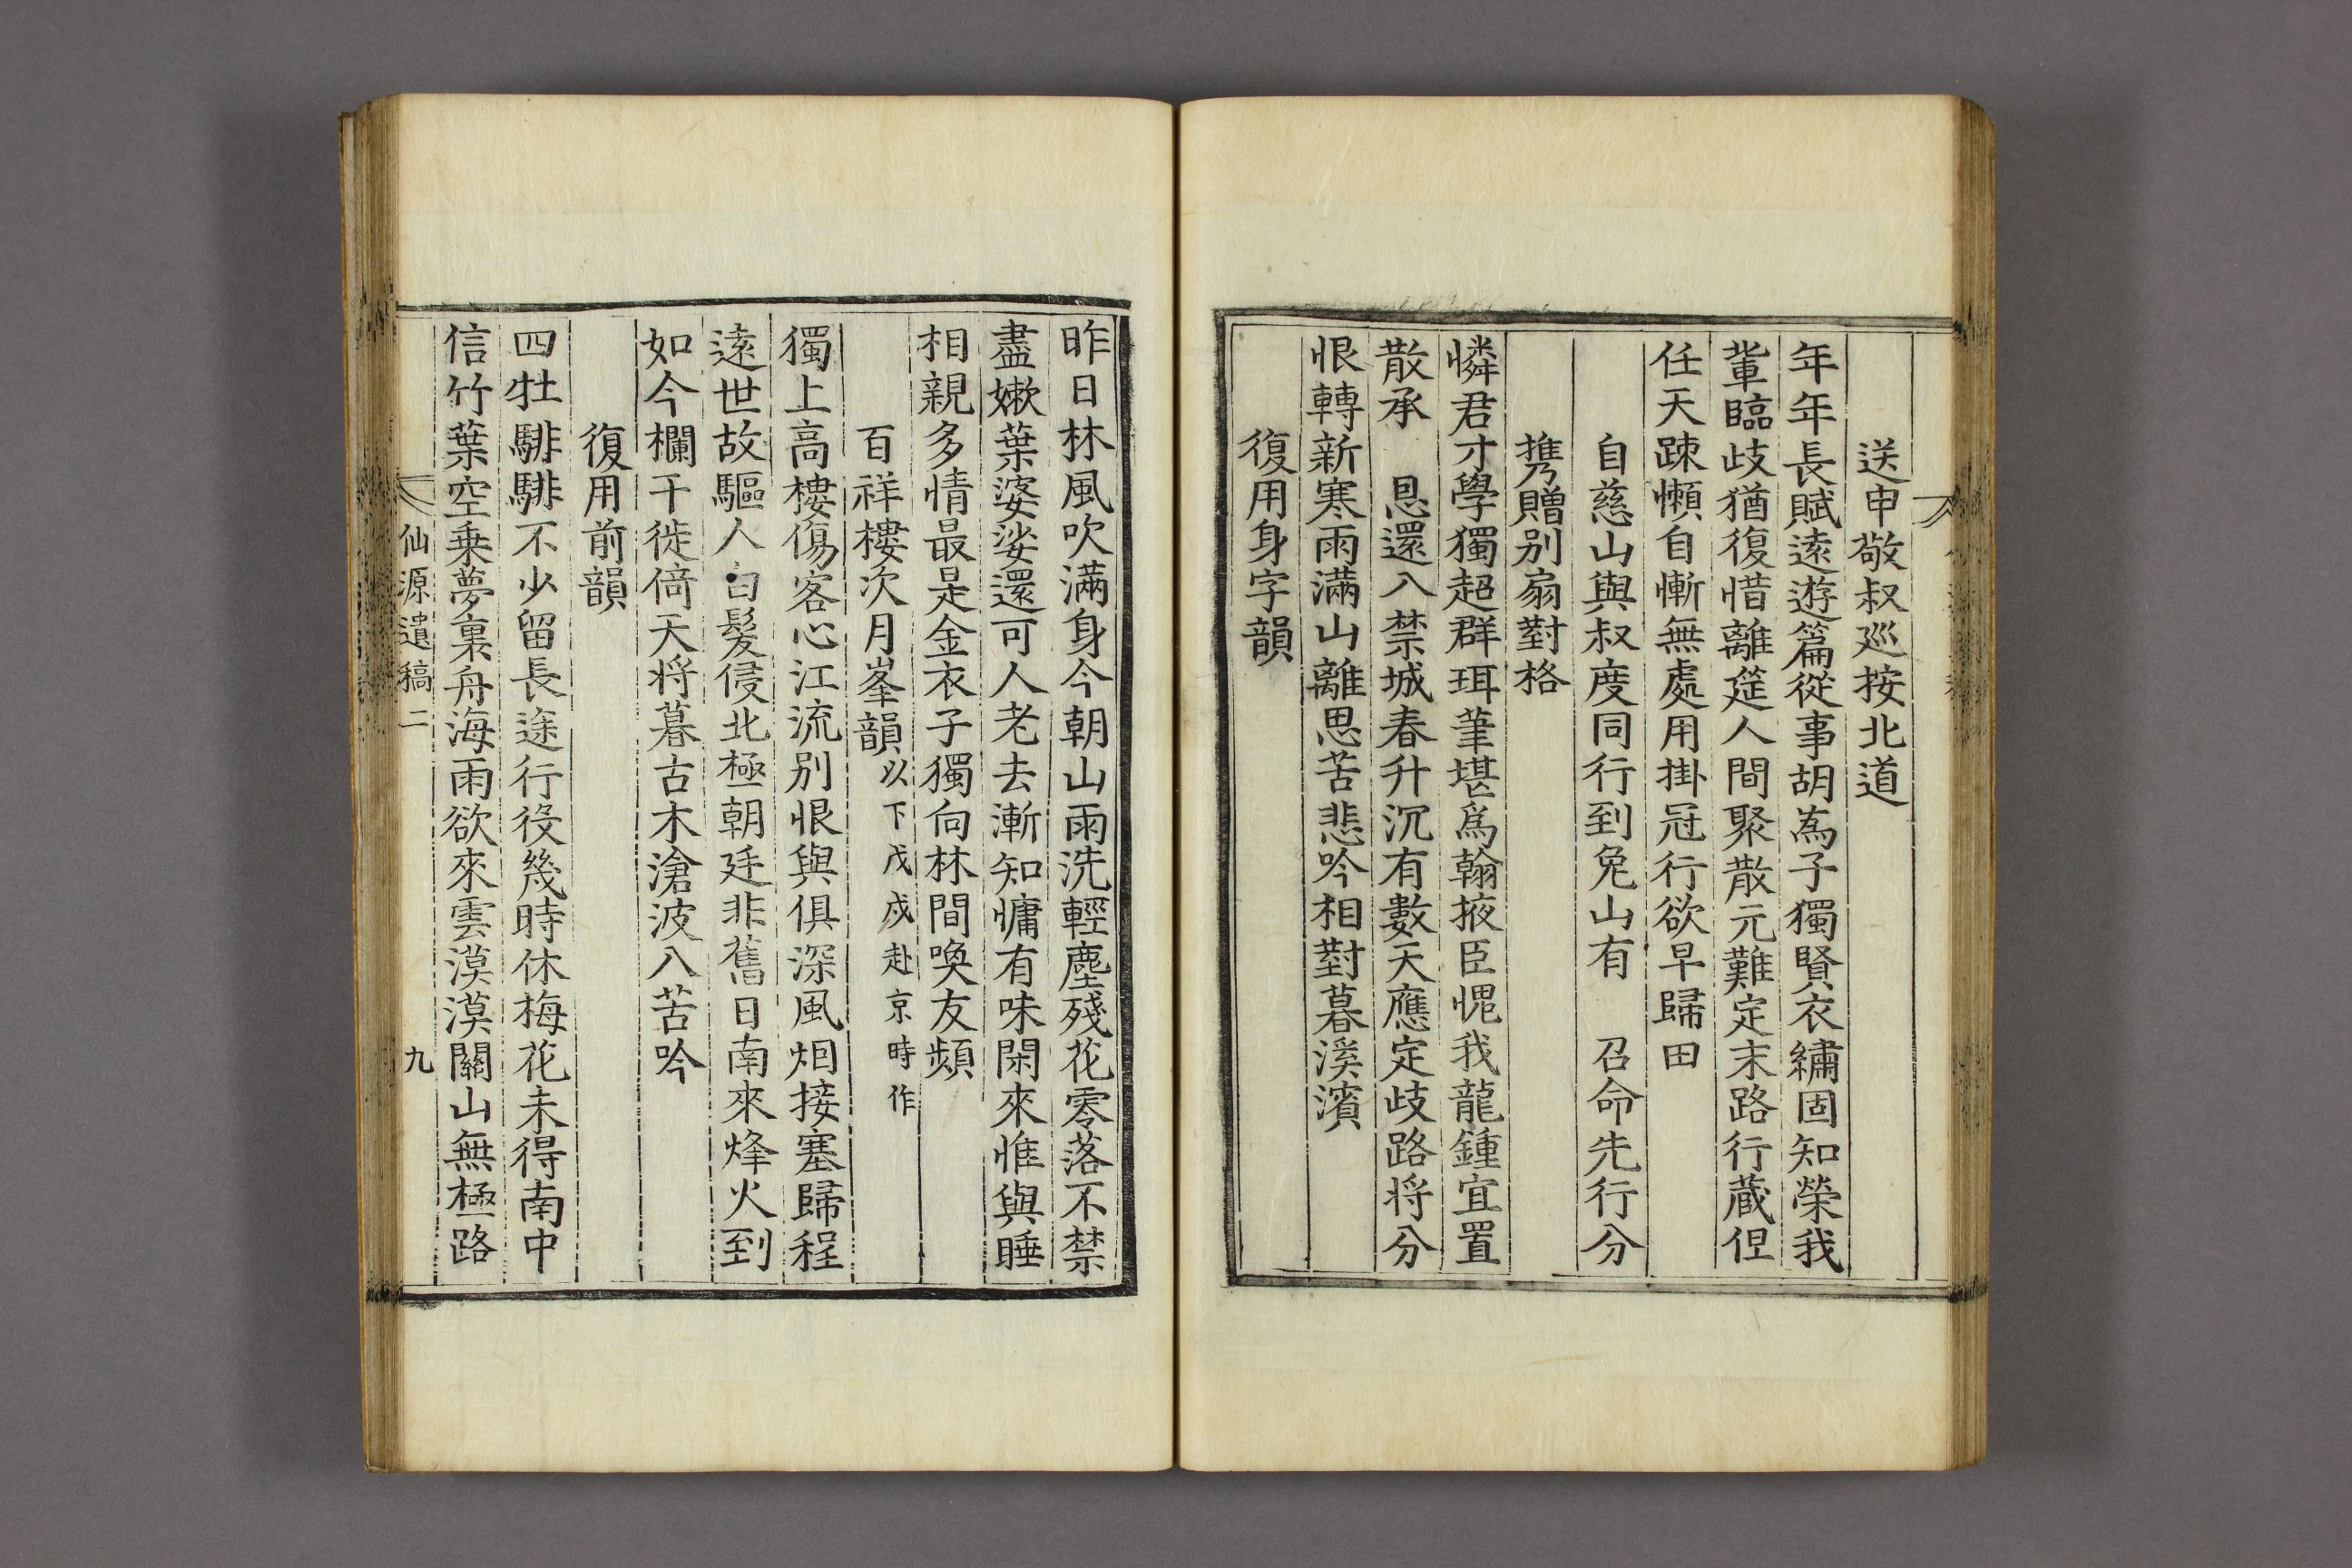 送申敬叔巡按北道
年年長賦遠遊篇從事胡為子獨賢衣繡固知榮我
輩臨歧猶復惜離筵人間聚散元難定末路行藏但
任天踈懶自慚無處用掛冠行欲早歸田
自慈山與叔度同行到兔山有　召命先行分
携贈别扇對格
憐君才學獨超群珥筆堪爲翰掖臣愧我龍鍾宜置
散承　恩還入禁城春升沉有數天應定歧路将分
恨轉新寒雨滿山離思苦悲吟相對暮溪濱
復用身字韻
昨日林風吹滿身今朝山雨洗輕塵殘花零落不禁
盡嫩葉婆娑還可人老去漸知慵有味閑來惟與睡
相親多情最是金衣子獨向林間喚友頻
百祥樓次月峯韻以下戊戌赴京時作
獨上高樓傷客心江流别恨與俱深風烟接塞歸程
遠世故驅人白髮侵北極朝廷非舊日南來烽火到
如今欄干徙倚天将暮古木滄波入苦吟
復用前韻
四牡騑騑不少留長途行役幾時休梅花未得南中
信竹葉空乘夢裏舟海雨欲來雲漠漠關山無極路
仙源遺稿二
九